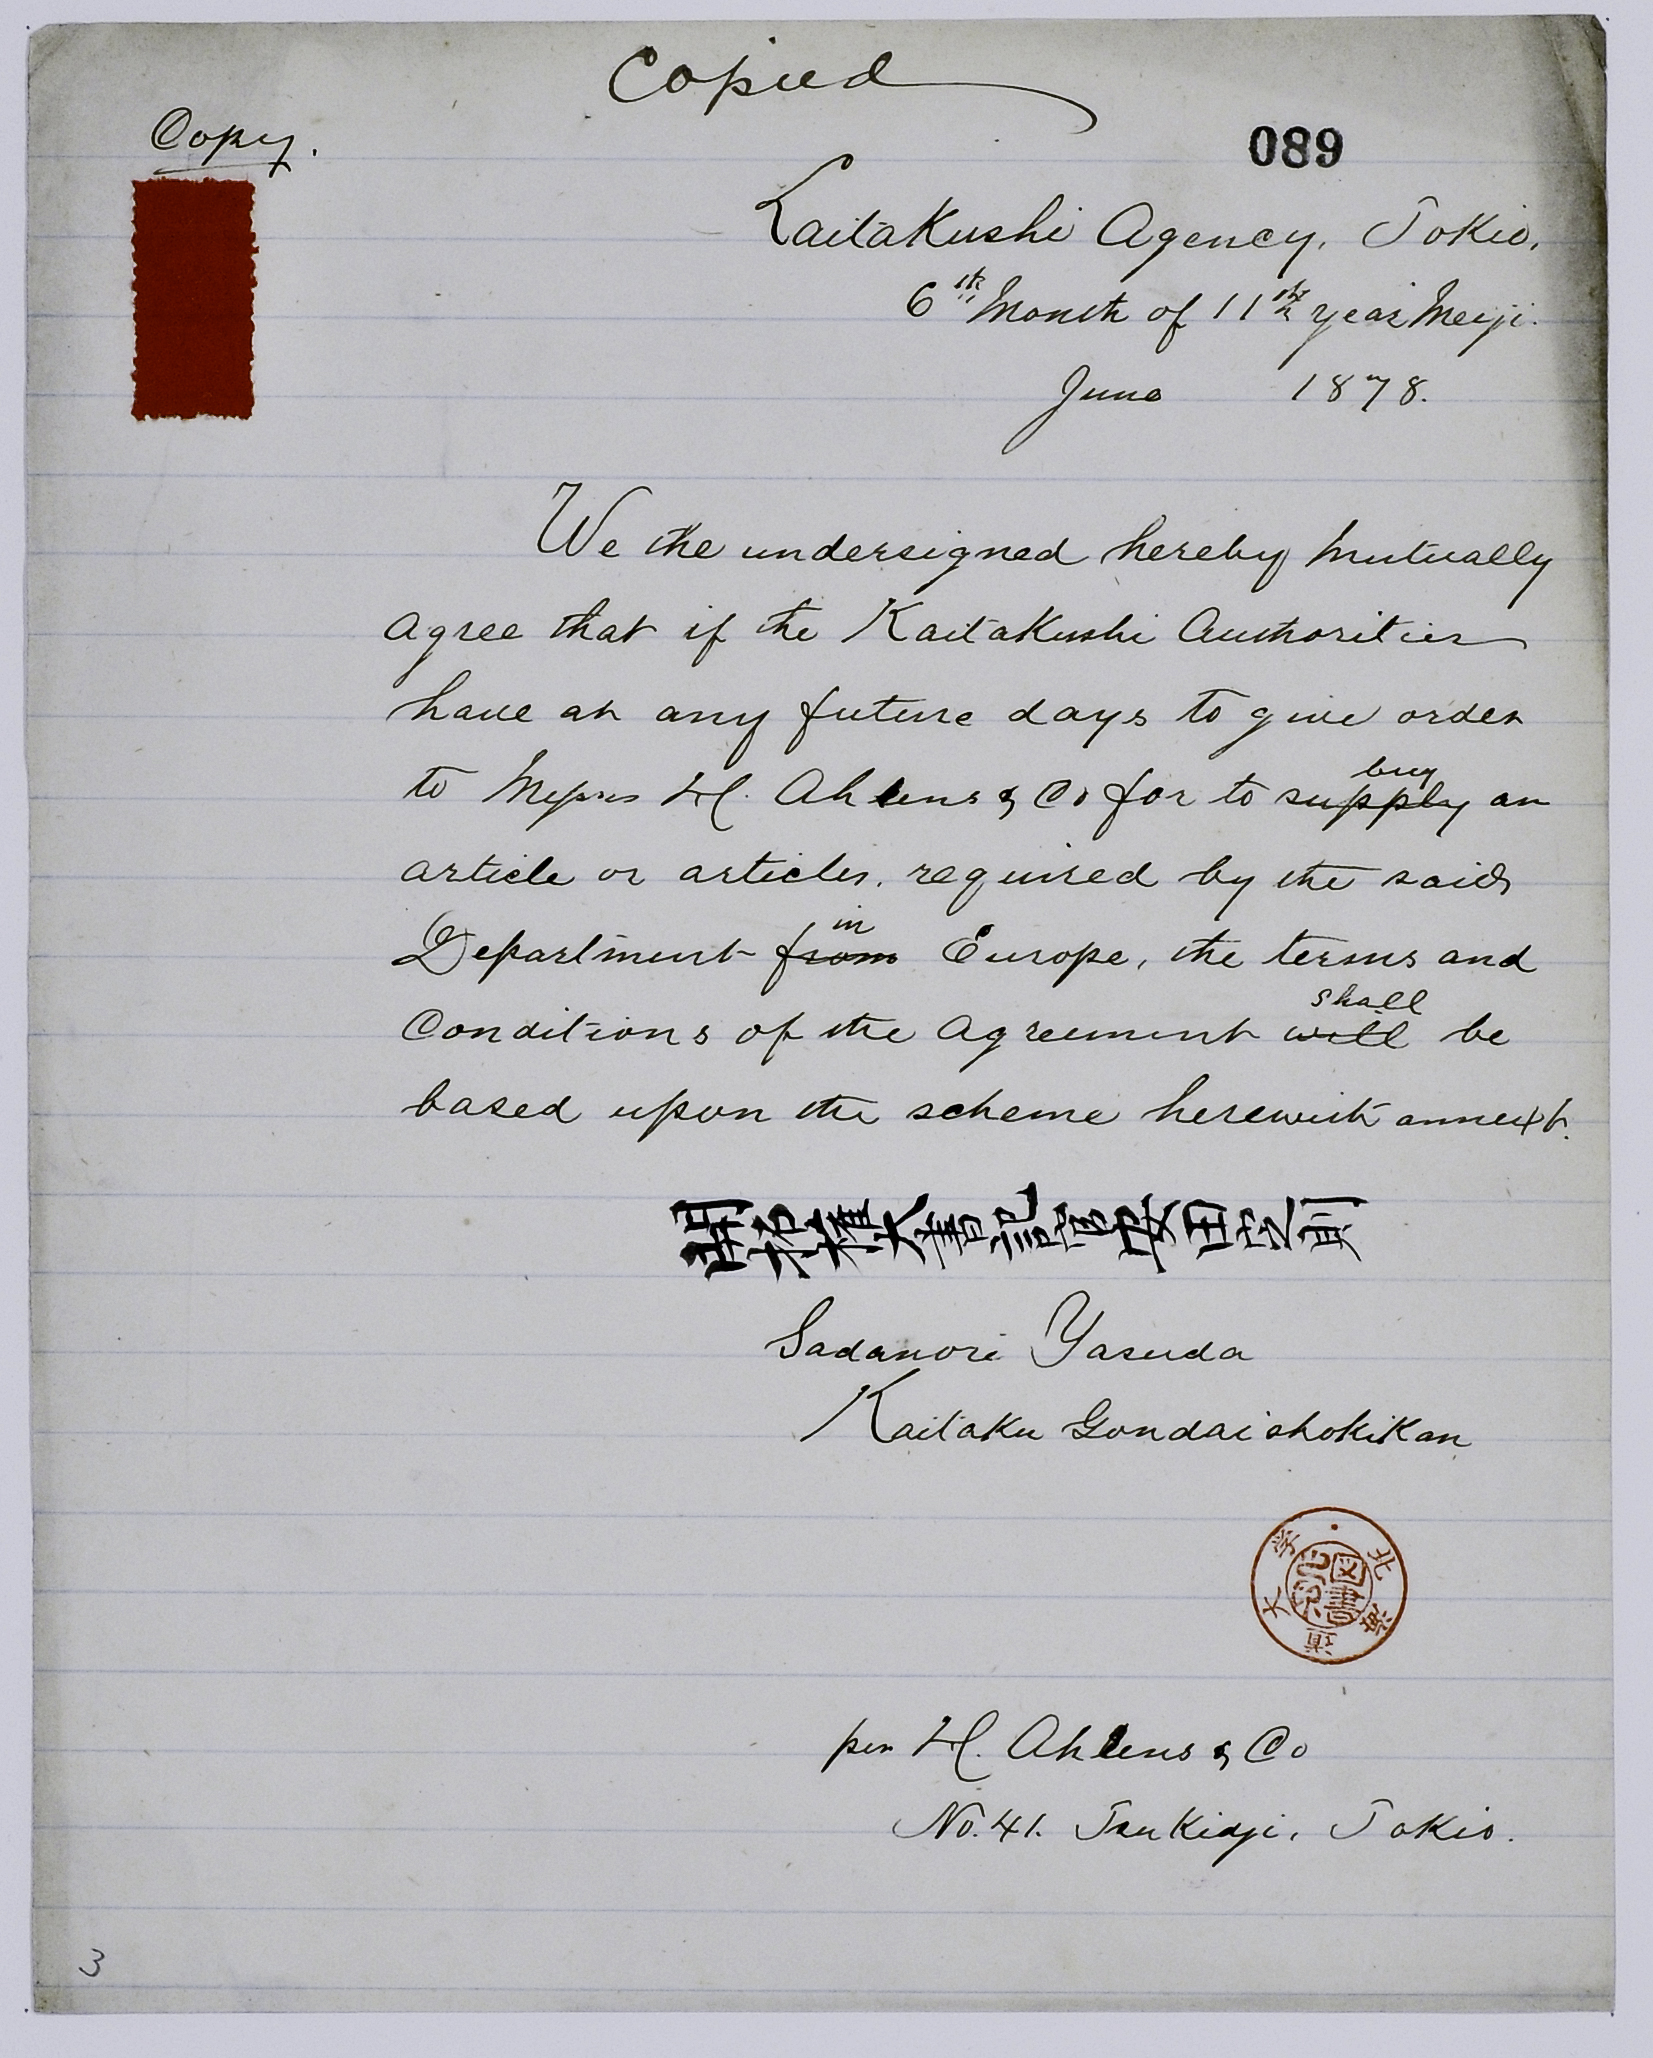 Copied
Copy.
089
Kaitakushi Agency, Tokio.
6th Month of 11th year Meiji.
June 1878.
We the undersigned hereby mutually
agree that if the Kaitakushi Authorities
have at any future days to give order
to Messrs H. Ahrens & Co for to supply buy an
article or articles, required by the said
Department from in Europe, the terms and
Conditions of the Agreement will shall be
based upon the scheme herewith annext.
Sadanori Yasuda
Kaitaku Gondaishokikan
北海道大学
図書
per H. Ahrens & Co
No. 41. Tsukidji, Tokio.
3